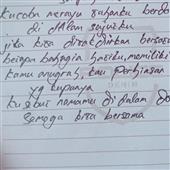 Kucoba merayu tuhanku berdo
di dalam sujudku
jika kita ditakdirkan bersatu
betapa bahagia hatiku, memiliki
kamu anugrah, kau perhiasan
yg kupunya
Ku sebut namamu di dalam do
semoga kita bersama